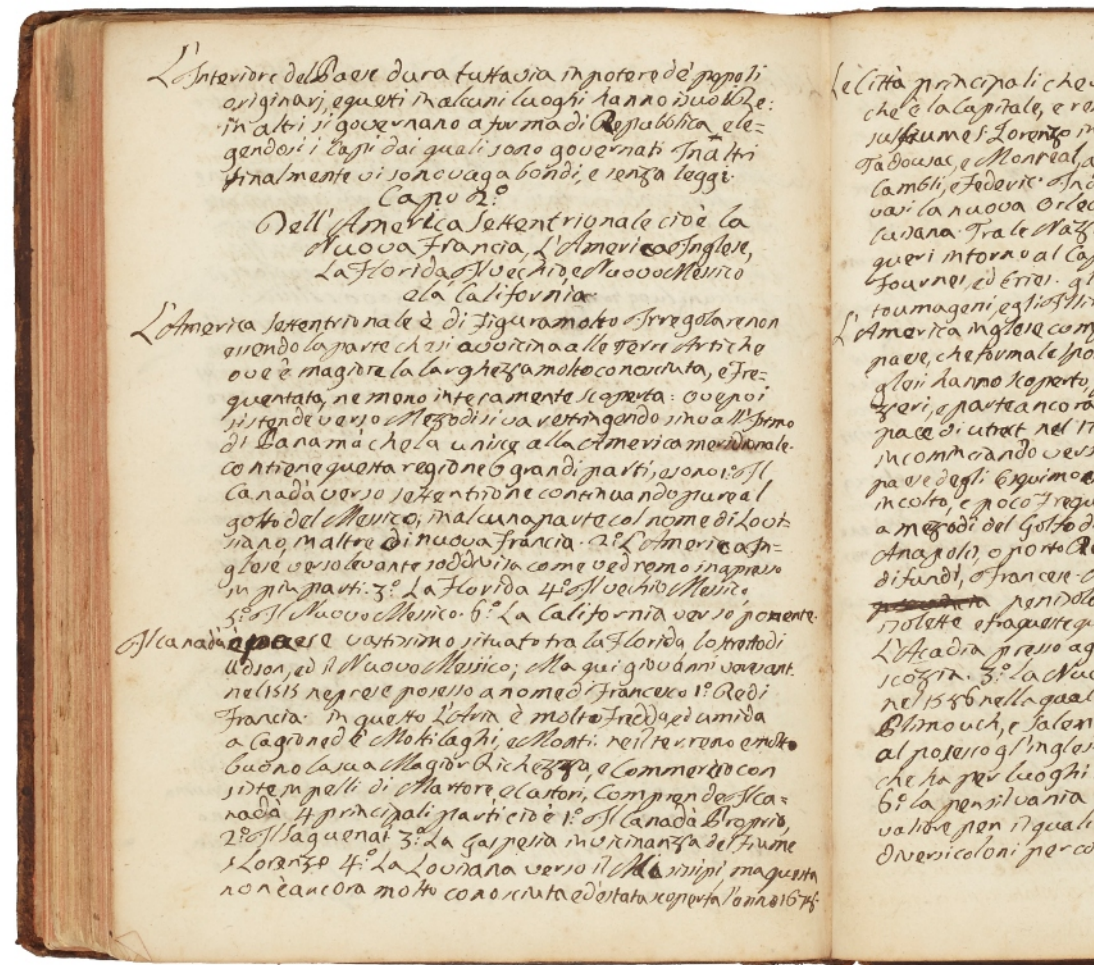 L'Interiore del Paese dura tuttavia in potere de' popoli
originarj, e questi in alcuni luoghi hanno i suoi Re:
in altri si governano a forma di Repubblica, ele=
gendosi i Capi dai quali sono governati In altri
finalmente vi sono vagabondi, e senza leggi.
Capo 2.º
Dell'America Settentrionale cioè la
Nuova Francia, L'America Inglese,
La Florida Il vechio, e Nuovo Messico
e la California
L'America Settentrionale è di Figura molto Irregolare non
essendo la parte che si avvicina alle Terre Artiche
ove è magiore la larghezza molto conosciuta, e Fre=
quentata, ne meno interamente scoperta: ove poi
si stende verso Mezodi si va restringendo sino all'Istmo
di Panamà che la unisce alla America meridionale.
contiene questa regione 6 grandi parti, e sono 1.º Il
Canadà verso settentrione continuando pure al
golfo del Messico, in alcuna parte col nome di Lovi=
siano, in altre di nuova francia. 2.º L'America In=
glese verso levante soddivisa come vedremo in apresso
in piu parti. 3.º La Florida 4.º Il vechio Messico
5.º Il Nuovo Messico. 6.º La California verso ponente.
Il Canadà e paese vastissimo situato tra la Florida, lo stretto di
Udson, ed il Nuovo Messico; Ma qui giovanni
nel 1515 ne prese posesso a nome di Francesco 1.º Re di
Francia. in questo L'Aria è molto Fredda, ed umida
a Cagione de' Molti laghi, e Monti. neil terreno e molto
buono la sua Magior Richezza, e Commercio con
siste in pelli di Martore e Castori, Comprende Il Ca=
nadà 4 principali parti cioè 1.º Il Canadà Proprio,
2.º Il saguenai 3.º La Gaspesia in vicinanza del Fiume
s Lorenzo 4.º La Lovisiana verso il Missisipi, ma questa
non è ancora molto conosciuta ed è stata scoperta l'anno
Le Città principali che
che è la Capitale, e re
sul fiume S. Lorenzo in
Tadousac, e Monreal, a
Cambli, e Federic.
vasi la nuova Orle
luisana. Tra le Naz
queri intorno al Ca
Fournes, ed Eries. gl
toumageni, egli
L'America inglese com
paese, che forma le spo
glesi hanno scoperto,
e parte ancora
pace di utrect nel 17
incominciando vers
paese degli Esquimo
incolto, e poco Frequ
a mezodi del Golfo d
Anapoli, o porto Re
di fundi, o francese.
penisole
isolette e fra queste qu
L'Acadia presso ag
scozzia. 3.º la Nuo
nel 1586 nella qual
Plimouch, e Salem
al posesso gl'ingles
che ha per luoghi
6.º la pensilvania
valiere pen il quali
diversi coloni per co